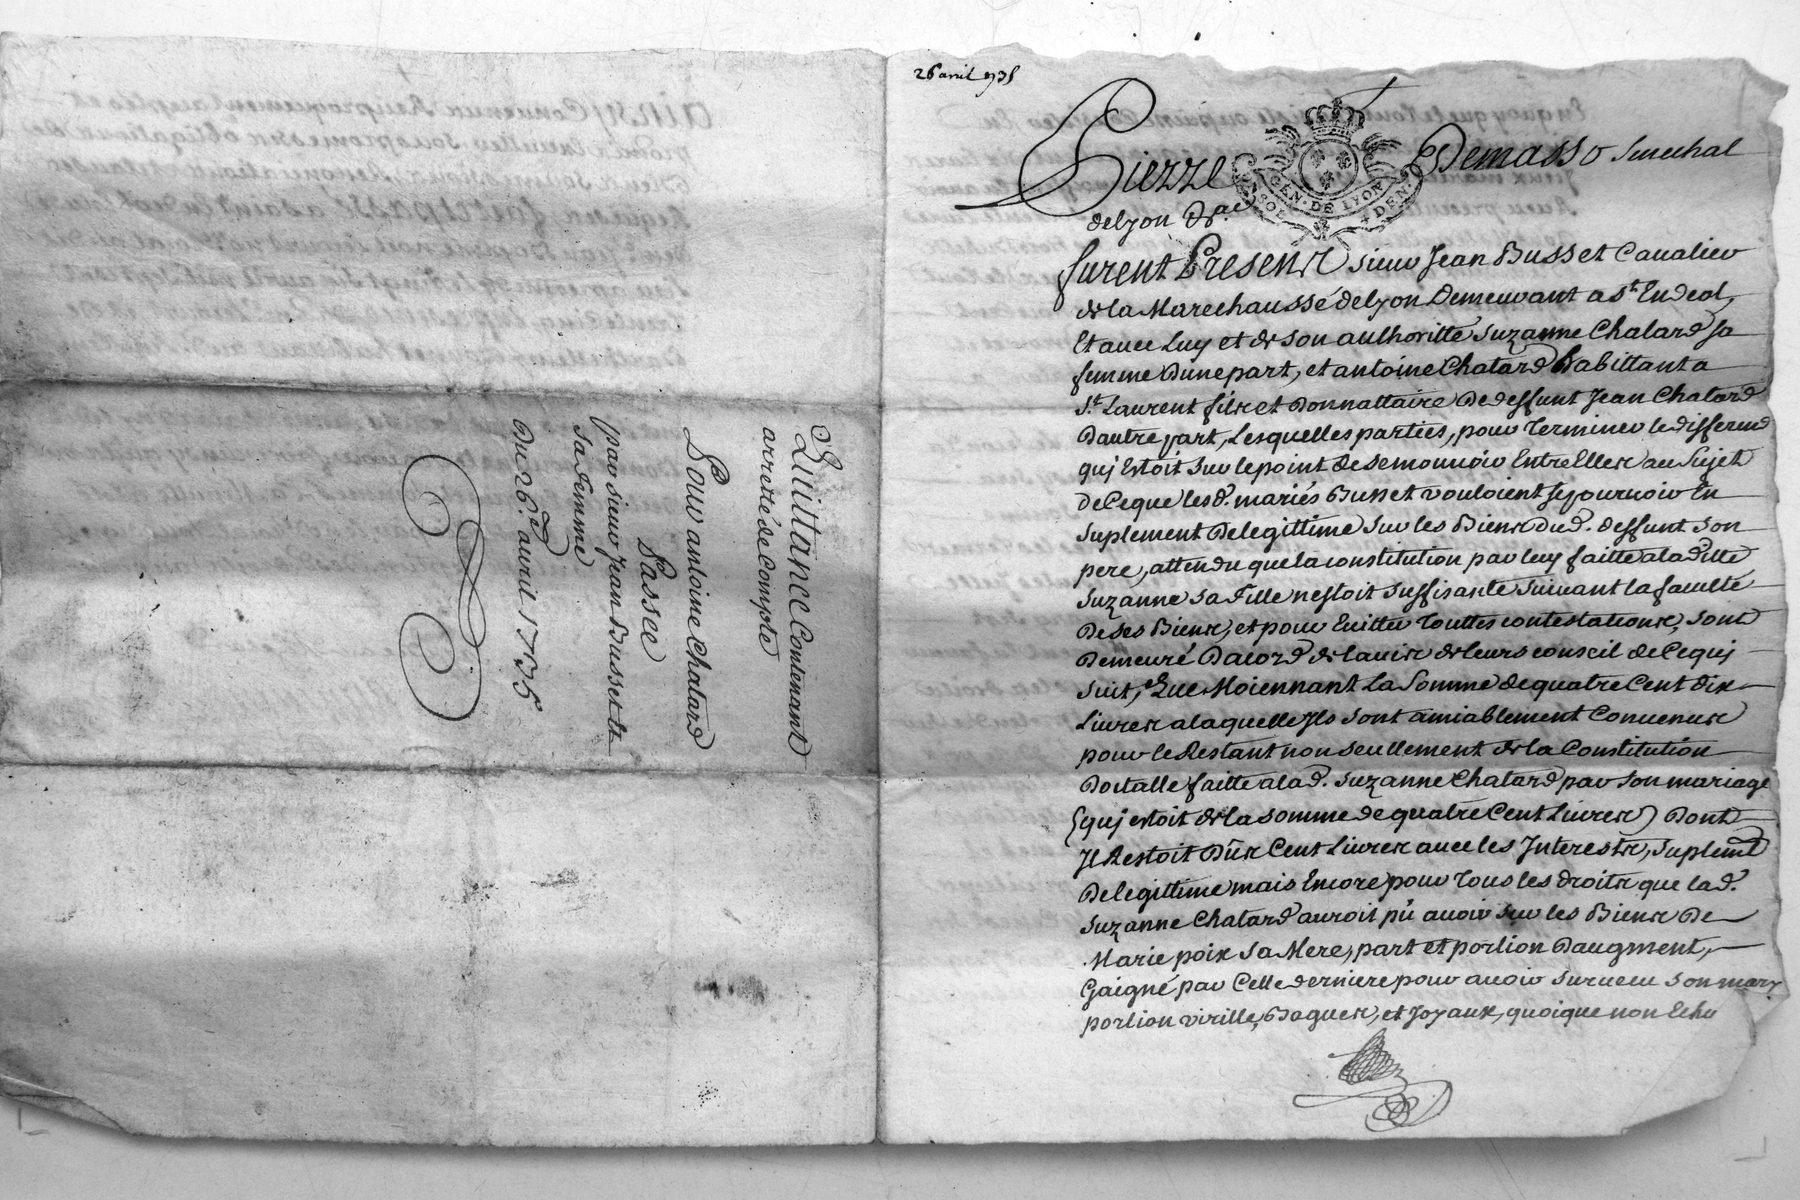 Quittance Contenant
arresté de Compte
Pour antoine Chatard
Passée
par sieur Jean Busset et
sa Femme
Du 26e. avril 1735
26 avril 1735
Pierre Demasso Senechal
GEN. DE LYON
delyon &ce
furent Presents sieur Jean Busset Cavalier
de la Marechaussé delyon Demeurant a st. Endeol,
Et avec Luy et de son authoritté Suzanne Chatard sa
femme Dune part, et antoine Chatard habittant a
St. Laurent fils et Donnattaire De deffunt Jean Chatard
Dautre part, Lesquelles parties, pour Terminer le differend
qui Estoit sur le point de se mouvoir Entre Elles au Sujet
De Ceque les d. mariés Busset vouloient se pourvoir En
Suplement De legittime sur les Biens Du d. deffunt son
pere, attendu que la constitution par luy faitte a la ditte
Suzanne sa Fille nestoit suffisante suivant la faculté
De ses Biens, et pour Evitter Touttes contestations, sont
Demeuré Dacord de lavis de leurs conseil de Cequi
suit, Que Moiennant La Somme de quatre Cent dix
Livres a laquelle Ils sont amiablement Convenus
pour le Restant non seullement de la Constitution
Dotalle faitte a la d. Suzanne Chatard par son mariage
(qui estoit de la somme de quatre Cent Livres) Dont
Il Restoit Dûs Cent Livres avec les Interests, suplemt
De legittime mais Encore pour Tous les droits que la d.
Suzanne Chatard auroit pû avoir sur les Biens De
Marie poix sa Mere, part et portion Daugment,
Gaigné par Celle derniere pour avoir survecu son mary
portion virille, Bagues, et Joyaux, quoique non Echu